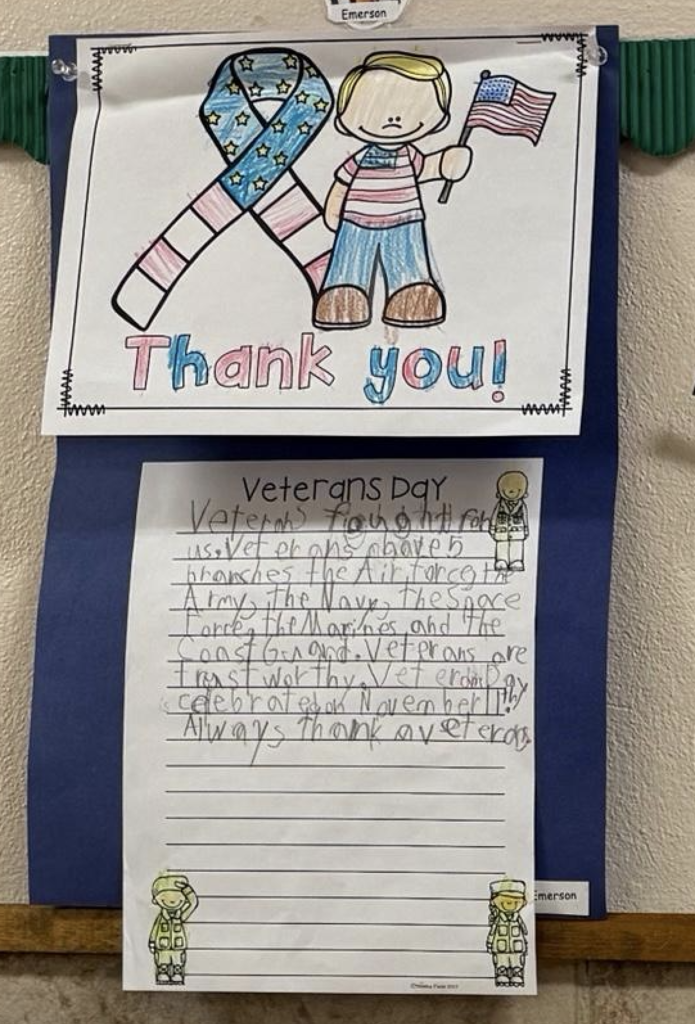 Emerson
Thank you!
Veterans Day
Veterans fought for
us. Veterans have 5
branches the Air force, the
Army, the Navy, the Space
Force, the Marines and the
Coast Guard. Veterans are
trustworthy. Veterans Day
celebrated on November 11th
Always thank a veterans.
Emerson